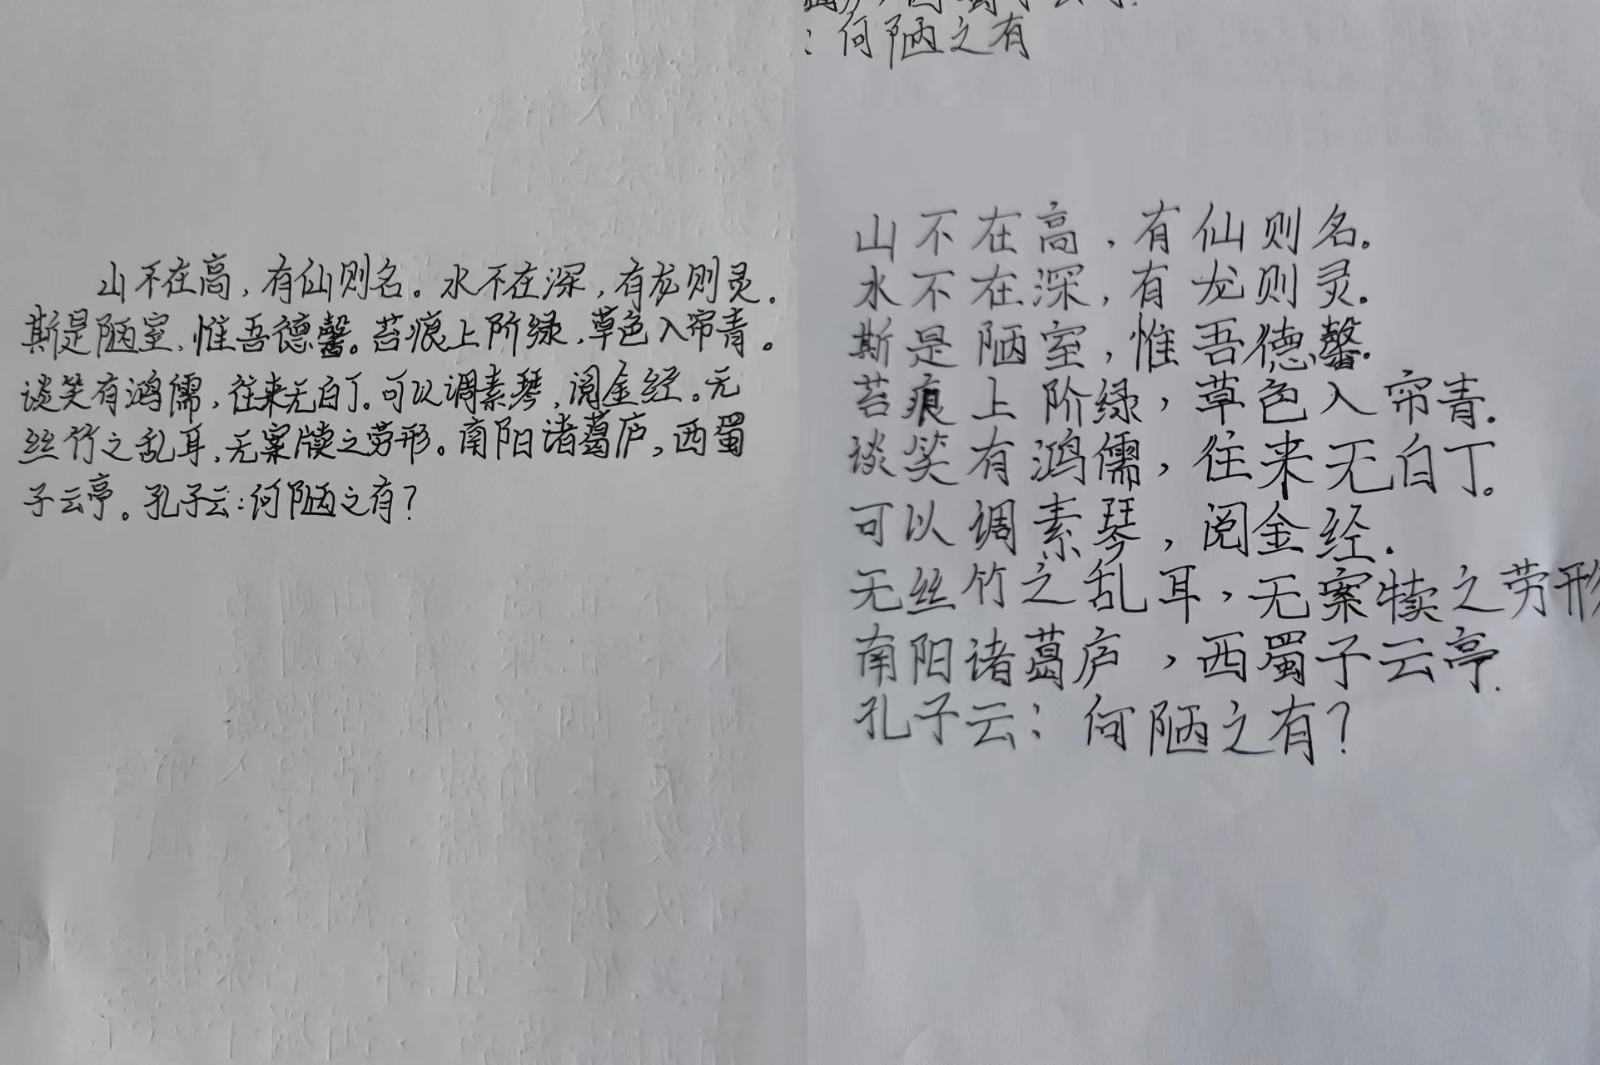 山不在高，有仙则名。水不在深，有龙则灵。
斯是陋室，惟吾德馨。苔痕上阶绿，草色入帘青。
谈笑有鸿儒，往来无白丁。可以调素琴，阅金经。无
丝竹之乱耳，无案牍之劳形。南阳诸葛庐，西蜀
子云亭。孔子云：何陋之有？
：何陋之有
山不在高，有仙则名。
水不在深，有龙则灵.
斯是陋室，惟吾德馨.
苔痕上阶绿，草色入帘青.
谈笑有鸿儒，往来无白丁。
可以调素琴，阅金经.
无丝竹之乱耳，无案犊之劳形
南阳诸葛庐，西蜀子云亭.
孔子云：何陋之有？